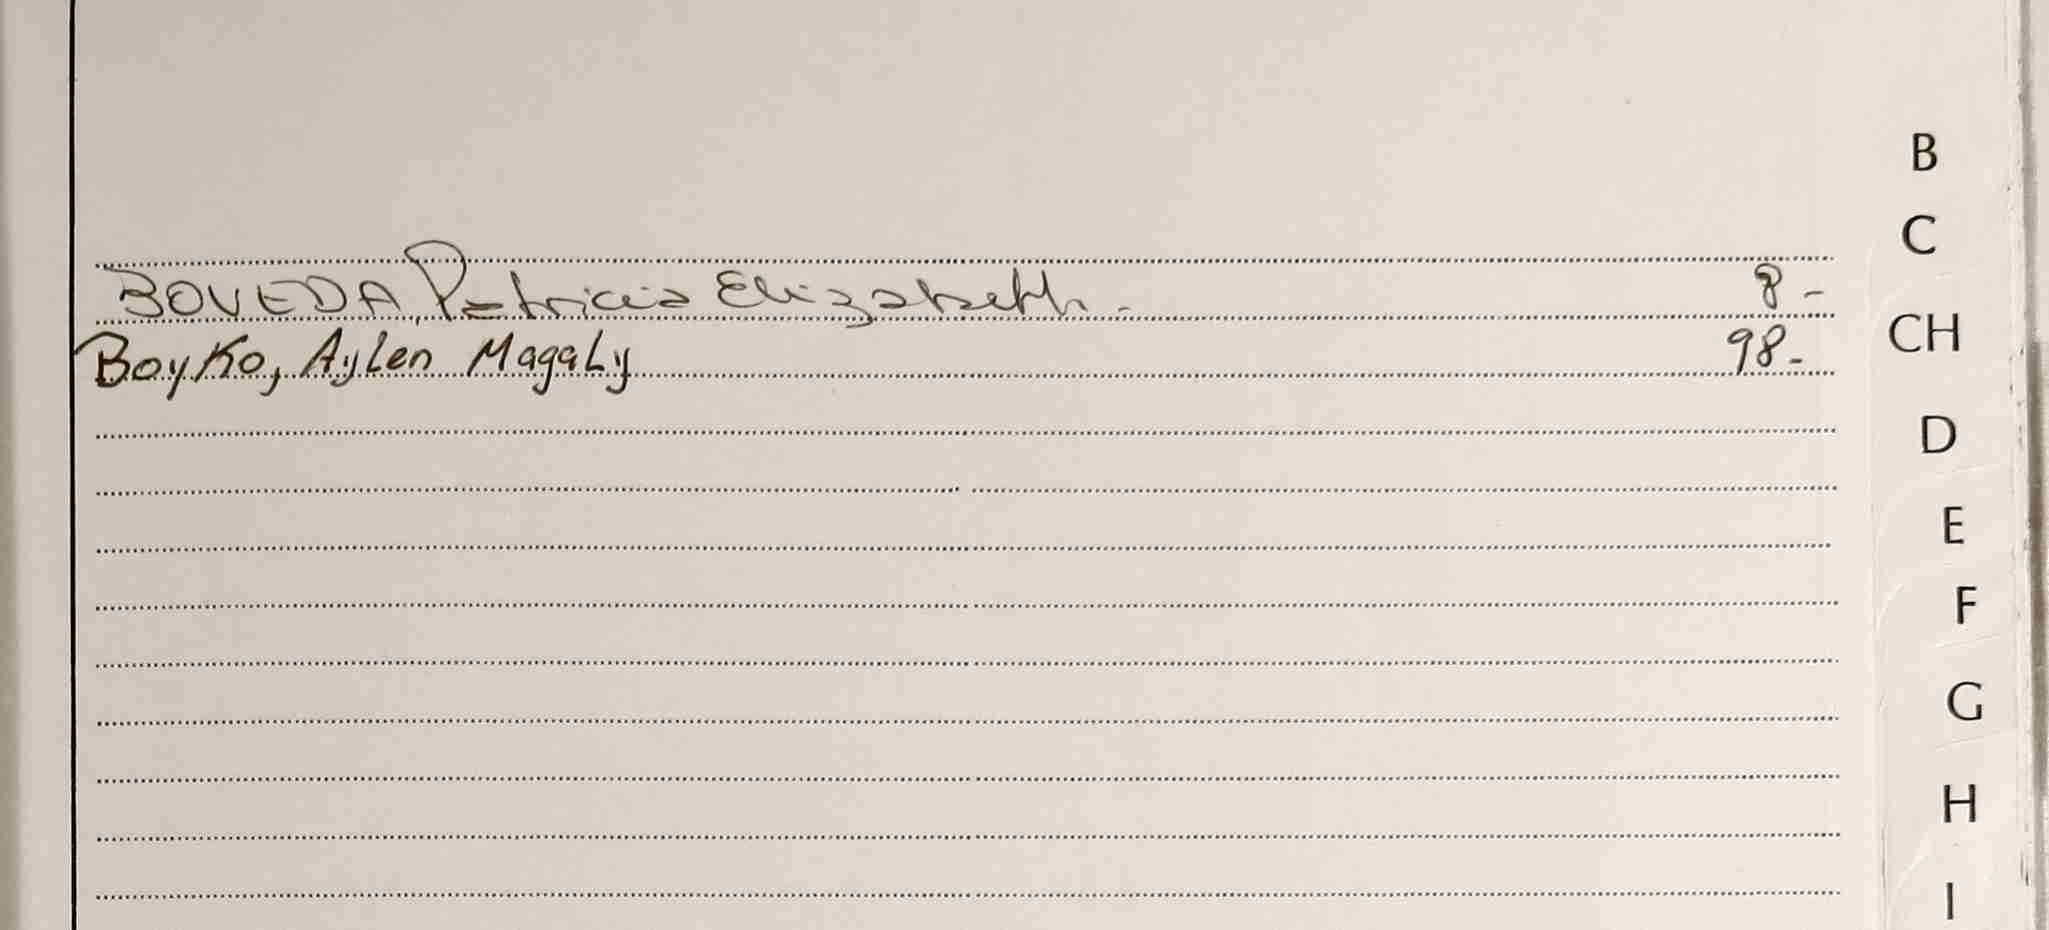 B
C
BOVEDA, Patricia Elizabeth.- 8-
Boyko, Aylen Magaly 98-
CH
D
E
F
G
H
I